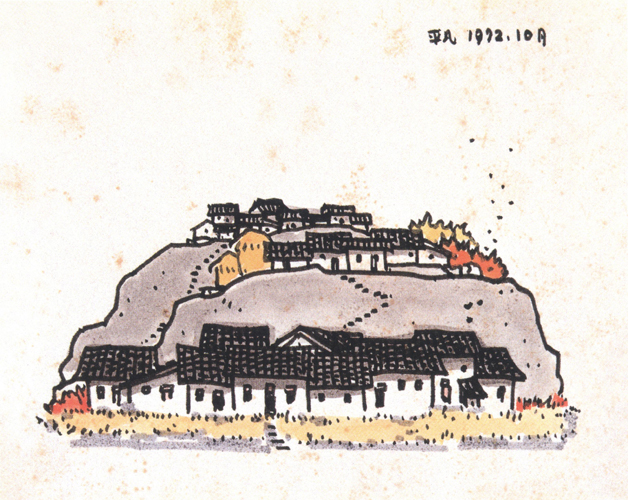 平凡 1972.10月